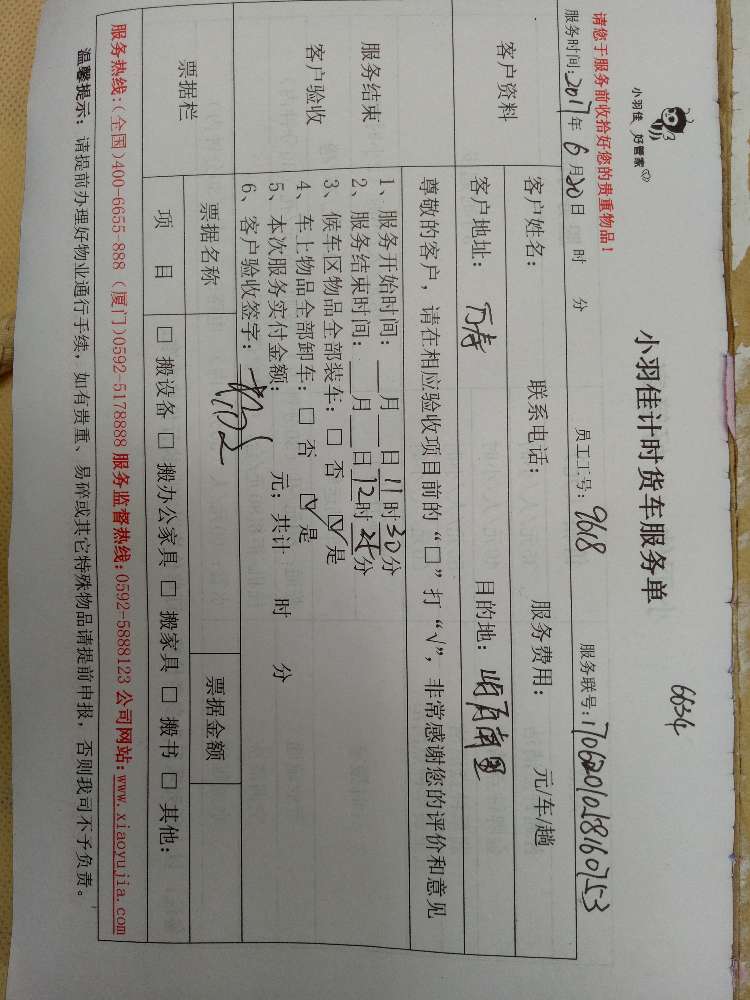 6634
小羽佳 好管家
小羽佳计时货车服务单
请您于服务前收拾好您的贵重物品！
服务时间:2017年6月20日 时 分 员工工号:9618 服务联号:1706201028160753
客户资料
客户姓名: 联系电话: 服务费用: 元/车/趟
客户地址: 万寿 目的地:
服务结束
客户验收
尊敬的客户，请在相应验收项目前的“□”打“√”，非常感谢您的评价和意见
1、服务开始时间: 月 日11时30分
2、服务结束时间: 月 日12时25分
3、候车区物品全部装车: □ 否 ☑ 是
4、车上物品全部卸车: □ 否 ☑ 是
5、本次服务实付金额: 元; 共计 时 分
6、客户验收签字:
票据栏
票据名称 票据金额
项 目 □ 搬设备 □ 搬办公家具 □ 搬家具 □ 搬书 □ 其他:
服务热线:(全国)400-6655-888 (厦门)0592-5178888 服务监督热线:0592-5888123 公司网站:www.xiaoyujia.com
温馨提示: 请提前办理好物业通行手续，如有贵重、易碎或其它特殊物品请提前申报，否则我司不予负责。